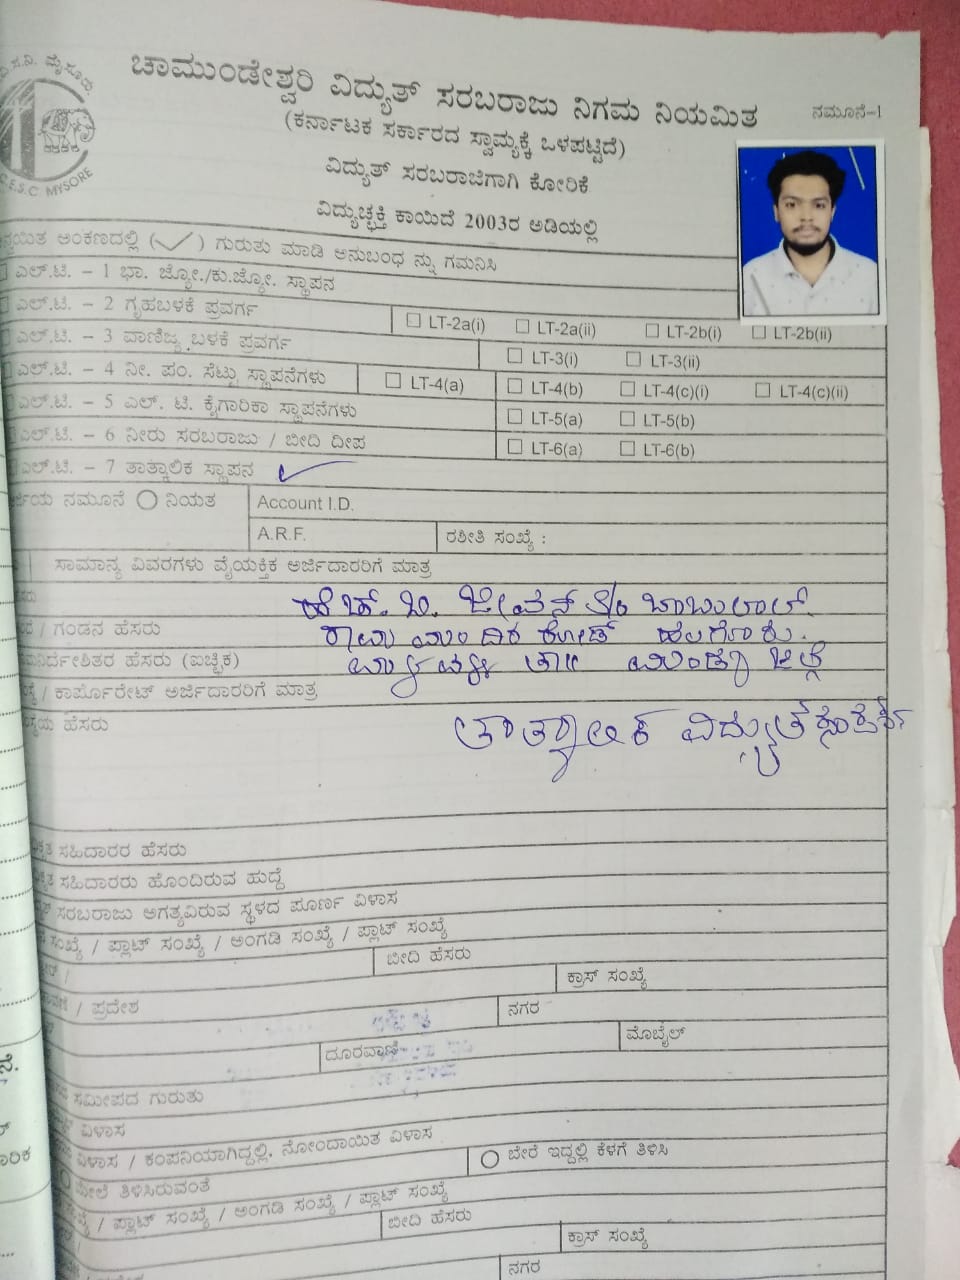 ವಿ.ಸ.ನಿ. ಮೈಸೂರು.
C.E.S.C MYSORE
ಚಾಮುಂಡೇಶ್ವರಿ ವಿದ್ಯುತ್ ಸರಬರಾಜು ನಿಗಮ ನಿಯಮಿತ
ನಮೂನೆ-1
(ಕರ್ನಾಟಕ ಸರ್ಕಾರದ ಸ್ವಾಮ್ಯಕ್ಕೆ ಒಳಪಟ್ಟಿದೆ)
ವಿದ್ಯುತ್ ಸರಬರಾಜಿಗಾಗಿ ಕೋರಿಕೆ
ವಿದ್ಯುಚ್ಛಕ್ತಿ ಕಾಯಿದೆ 2003ರ ಅಡಿಯಲ್ಲಿ
ಅಂಕಣದಲ್ಲಿ (✓) ಗುರುತು ಮಾಡಿ ಅನುಬಂಧ ನ್ನು ಗಮನಿಸಿ
ಎಲ್.ಟಿ. – 1 ಭಾ. ಜ್ಯೋ./ಕು.ಜ್ಯೋ. ಸ್ಥಾಪನ
ಎಲ್.ಟಿ. – 2 ಗೃಹಬಳಕೆ ಪ್ರವರ್ಗ ☐ LT-2a(i) ☐ LT-2a(ii) ☐ LT-2b(i) ☐ LT-2b(ii)
ಎಲ್.ಟಿ. – 3 ವಾಣಿಜ್ಯ ಬಳಕೆ ಪ್ರವರ್ಗ ☐ LT-3(i) ☐ LT-3(ii)
ಎಲ್.ಟಿ. – 4 ನೀ. ಪಂ. ಸೆಟ್ಟು ಸ್ಥಾಪನೆಗಳು ☐ LT-4(a) ☐ LT-4(b) ☐ LT-4(c)(i) ☐ LT-4(c)(ii)
ಎಲ್.ಟಿ. – 5 ಎಲ್. ಟಿ. ಕೈಗಾರಿಕಾ ಸ್ಥಾಪನೆಗಳು ☐ LT-5(a) ☐ LT-5(b)
ಎಲ್.ಟಿ. – 6 ನೀರು ಸರಬರಾಜು / ಬೀದಿ ದೀಪ ☐ LT-6(a) ☐ LT-6(b)
ಎಲ್.ಟಿ. – 7 ತಾತ್ಕಾಲಿಕ ಸ್ಥಾಪನ ✓
ನಮೂನೆ ○ ನಿಯತ Account I.D.
A.R.F. ರಶೀತಿ ಸಂಖ್ಯೆ :
ಸಾಮಾನ್ಯ ವಿವರಗಳು ವೈಯಕ್ತಿಕ ಅರ್ಜಿದಾರರಿಗೆ ಮಾತ್ರ
ಹೆಚ್. ಬಿ. ಜೀವನ್ S/o ಬಾಬುಲಾಲ್
/ ಗಂಡನ ಹೆಸರು ರಾಮ ಮಂದಿರ ರೋಡ್ ಹಲಗೂರು.
ಹೆಸರು (ಐಚ್ಛಿಕ) ಮಳವಳ್ಳಿ ತಾ॥ ಮಂಡ್ಯ ಜಿಲ್ಲೆ
/ ಕಾರ್ಪೊರೇಟ್ ಅರ್ಜಿದಾರರಿಗೆ ಮಾತ್ರ
ಹೆಸರು
ತಾತ್ಕಾಲಿಕ ವಿದ್ಯುತ್
ಸಹಿದಾರರ ಹೆಸರು
ಸಹಿದಾರರು ಹೊಂದಿರುವ ಹುದ್ದೆ
ಸರಬರಾಜು ಅಗತ್ಯವಿರುವ ಸ್ಥಳದ ಪೂರ್ಣ ವಿಳಾಸ
ಸಂಖ್ಯೆ / ಪ್ಲಾಟ್ ಸಂಖ್ಯೆ / ಅಂಗಡಿ ಸಂಖ್ಯೆ / ಪ್ಲಾಟ್ ಸಂಖ್ಯೆ
ಬೀದಿ ಹೆಸರು
ಕ್ರಾಸ್ ಸಂಖ್ಯೆ
/ ಪ್ರದೇಶ
ನಗರ
ಮೊಬೈಲ್
ದೂರವಾಣಿ
ಸಮೀಪದ ಗುರುತು
ವಿಳಾಸ
ವಿಳಾಸ / ಕಂಪನಿಯಾಗಿದ್ದಲ್ಲಿ, ನೋಂದಾಯಿತ ವಿಳಾಸ
○ ಮೇಲೆ ತಿಳಿಸಿರುವಂತೆ ○ ಬೇರೆ ಇದ್ದಲ್ಲಿ ಕೆಳಗೆ ತಿಳಿಸಿ
/ ಪ್ಲಾಟ್ ಸಂಖ್ಯೆ / ಅಂಗಡಿ ಸಂಖ್ಯೆ / ಪ್ಲಾಟ್ ಸಂಖ್ಯೆ
ಬೀದಿ ಹೆಸರು
ಕ್ರಾಸ್ ಸಂಖ್ಯೆ
ನಗರ